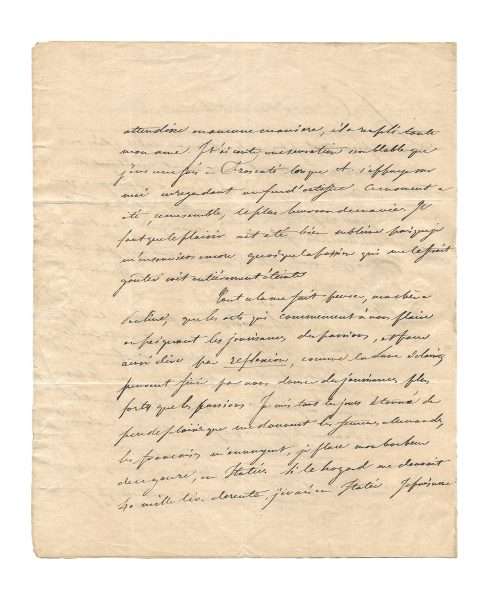 attendise en aucune manière, il a rempli toute
mon âme. Je n'ai senti une sensation semblable que
j'eus une fois à Frascati lorsque A s'appuya sur
moi en regardant un feu d'artifice. Ce moment a
été, ce me semble, le plus heureux de ma vie. Il
faut que le plaisir ait été bien sublime puisque je
m'en souviens encore quoique la passion qui me le fesait
goûter soit entièrement éteinte
Tout cela me fait penser, ma chère
Pauline, que les arts qui commencent à nous plaire
en peignant les jouissances des passions, et pour
ainsi dire par reflexion, comme la lune éclaire,
peuvent finir par nous donner des jouissances plus
fortes que les passions. Je suis tous les jours étonné du
peu de plaisir que me donnent les femmes allemandes,
les françaises m'ennuyent, je place mon bonheur
de ce genre, en Italie. Si le hazard me donnait
 mille liv. de rente, j'irais en Italie